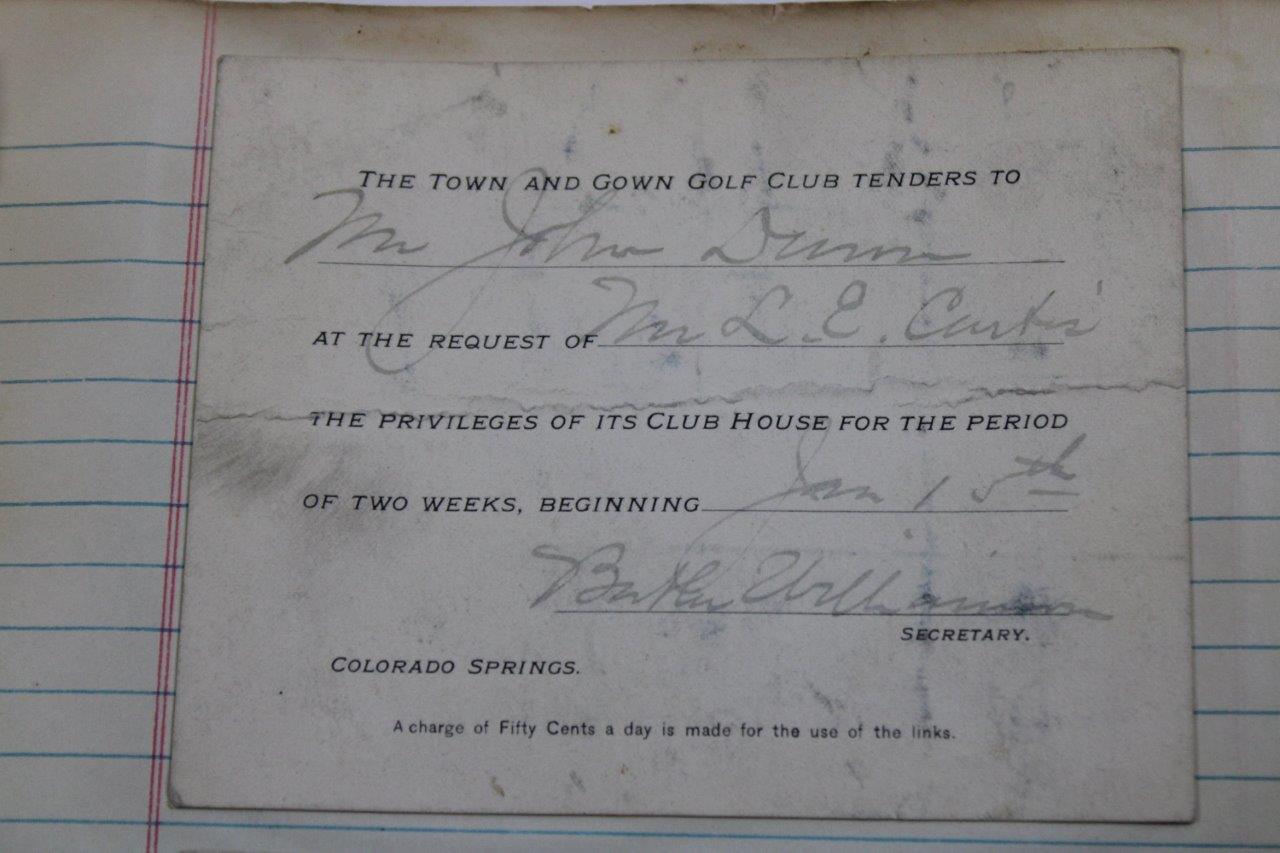 THE TOWN AND GOWN GOLF CLUB TENDERS TO
Mr John Dunn
AT THE REQUEST OF Mr L. E. Curtis
THE PRIVILEGES OF ITS CLUB HOUSE FOR THE PERIOD
OF TWO WEEKS, BEGINNING Jan 15th
Williamson
SECRETARY.
COLORADO SPRINGS.
A charge of Fifty Cents a day is made for the use of the links.